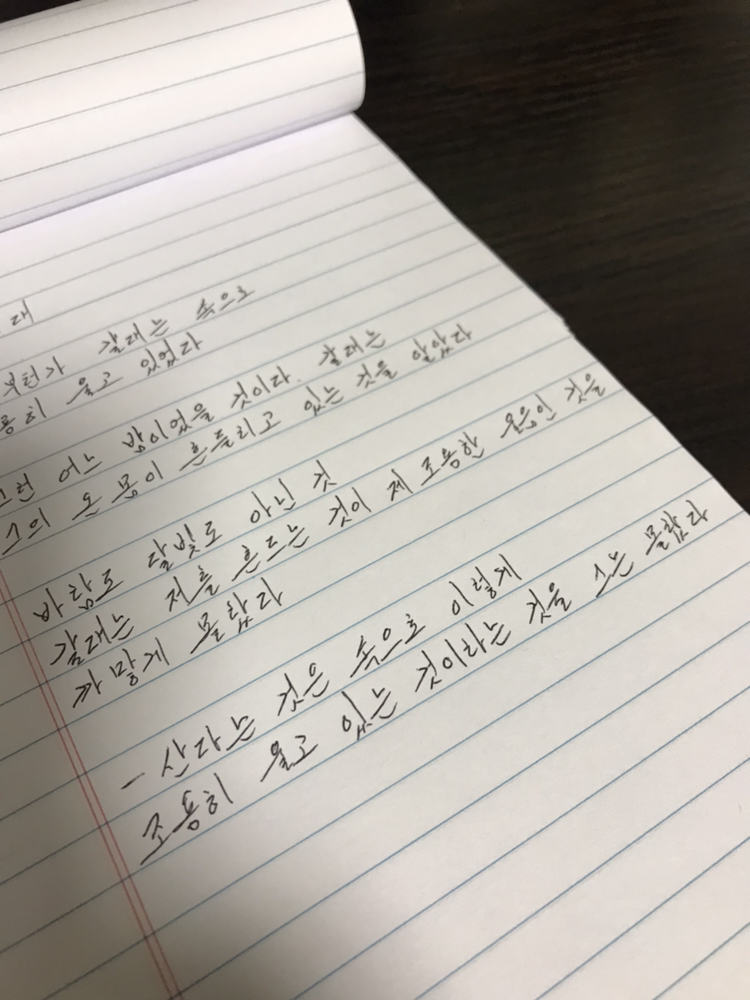 대
부턴가 갈대는 속으로
용히 울고 있었다
그런 어느 밤이었을 것이다. 갈대는
그의 온 몸이 흔들리고 있는 것을 알았다
바람도 달빛도 아닌 것
갈대는 저를 흔드는 것이 제 조용한 울음인 것을
까맣게 몰랐다
- 산다는 것은 속으로 이렇게
조용히 울고 있는 것이라는 것을 그는 몰랐다